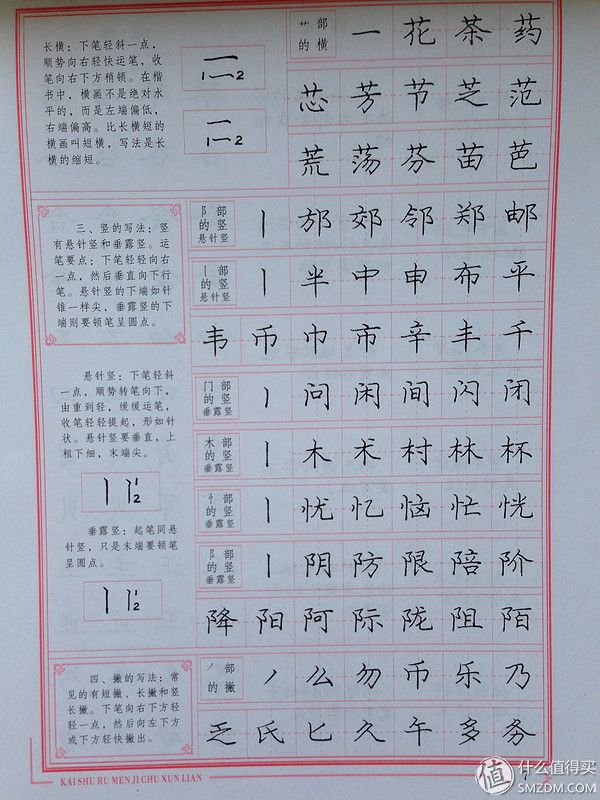 长横：下笔轻斜一点，
顺势向右轻快运笔，收
笔向右下方稍顿。在楷
书中，横画不是绝对水
平的，而是左端偏低，
右端偏高。比长横短的
横画叫短横，写法是长
横的缩短。
1 2
1 2
艹部
的横
一 花 茶 药
芯 芳 节 芝 范
荒 荡 芬 苗 芭
三、竖的写法：竖
有悬针竖和垂露竖。运
笔要点：下笔轻轻向右
一点，然后垂直向下行
笔。悬针竖的下端如针
锥一样尖，垂露竖的下
端则要顿笔呈圆点。
阝部
的竖
悬针竖
丨 邡 郊 邻 郑 邮
丨部
的竖
悬针竖
丨 半 中 申 布 平
韦 币 巾 市 辛 丰 千
悬针竖：下笔轻斜
一点，顺势转笔向下，
由重到轻，缓缓运笔，
收笔轻轻提起，形如针
状。悬针竖要垂直，上
粗下细，末端尖。
1 2
垂露竖：起笔同悬
针竖，只是末端要顿笔
呈圆点。
1 2
门部
的竖
垂露竖
丨 问 闲 间 闪 闭
木部
的竖
垂露竖
丨 木 术 村 林 杯
忄部
的竖
垂露竖
丨 忧 忆 恼 忙 恍
阝部
的竖
垂露竖
丨 阴 防 限 陪 阶
降 阳 阿 际 陇 阻 陌
四、撇的写法：常
见的有短撇、长撇和竖
长撇。下笔向右下方轻
轻一点，然后向左下方
或下方轻快撇出。
丿部
的撇
丿 么 勿 币 乐 乃
乏 氏 匕 久 午 多 务
KAI SHU RU MEN JI CHU XUN LIAN
值 什么值得买
SMZDM.COM